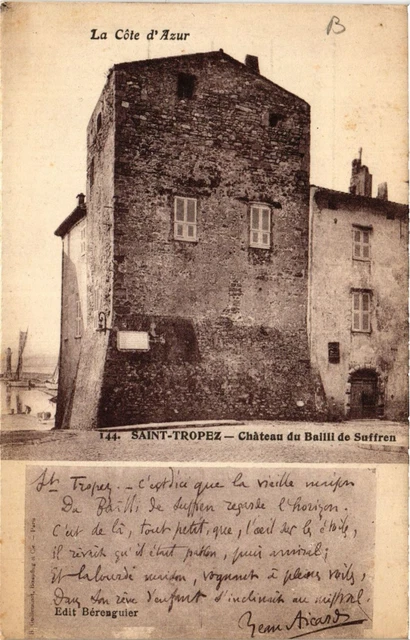 La Côte d'Azur
B
144. SAINT-TROPEZ — Château du Bailli de Suffren
St Tropez. — C'est ici que la vieille maison
Du Bailli de Suffren regarde l'horizon.
C'est de là, tout petit, que, l'œil sur les étoiles,
Il rêvait qu'il était patron, puis amiral;
Et la lourde maison, voguant à pleines voiles,
Dans son rêve d'enfant s'inclinait au mistral.
Edit Bérenguier
Jean Aicard